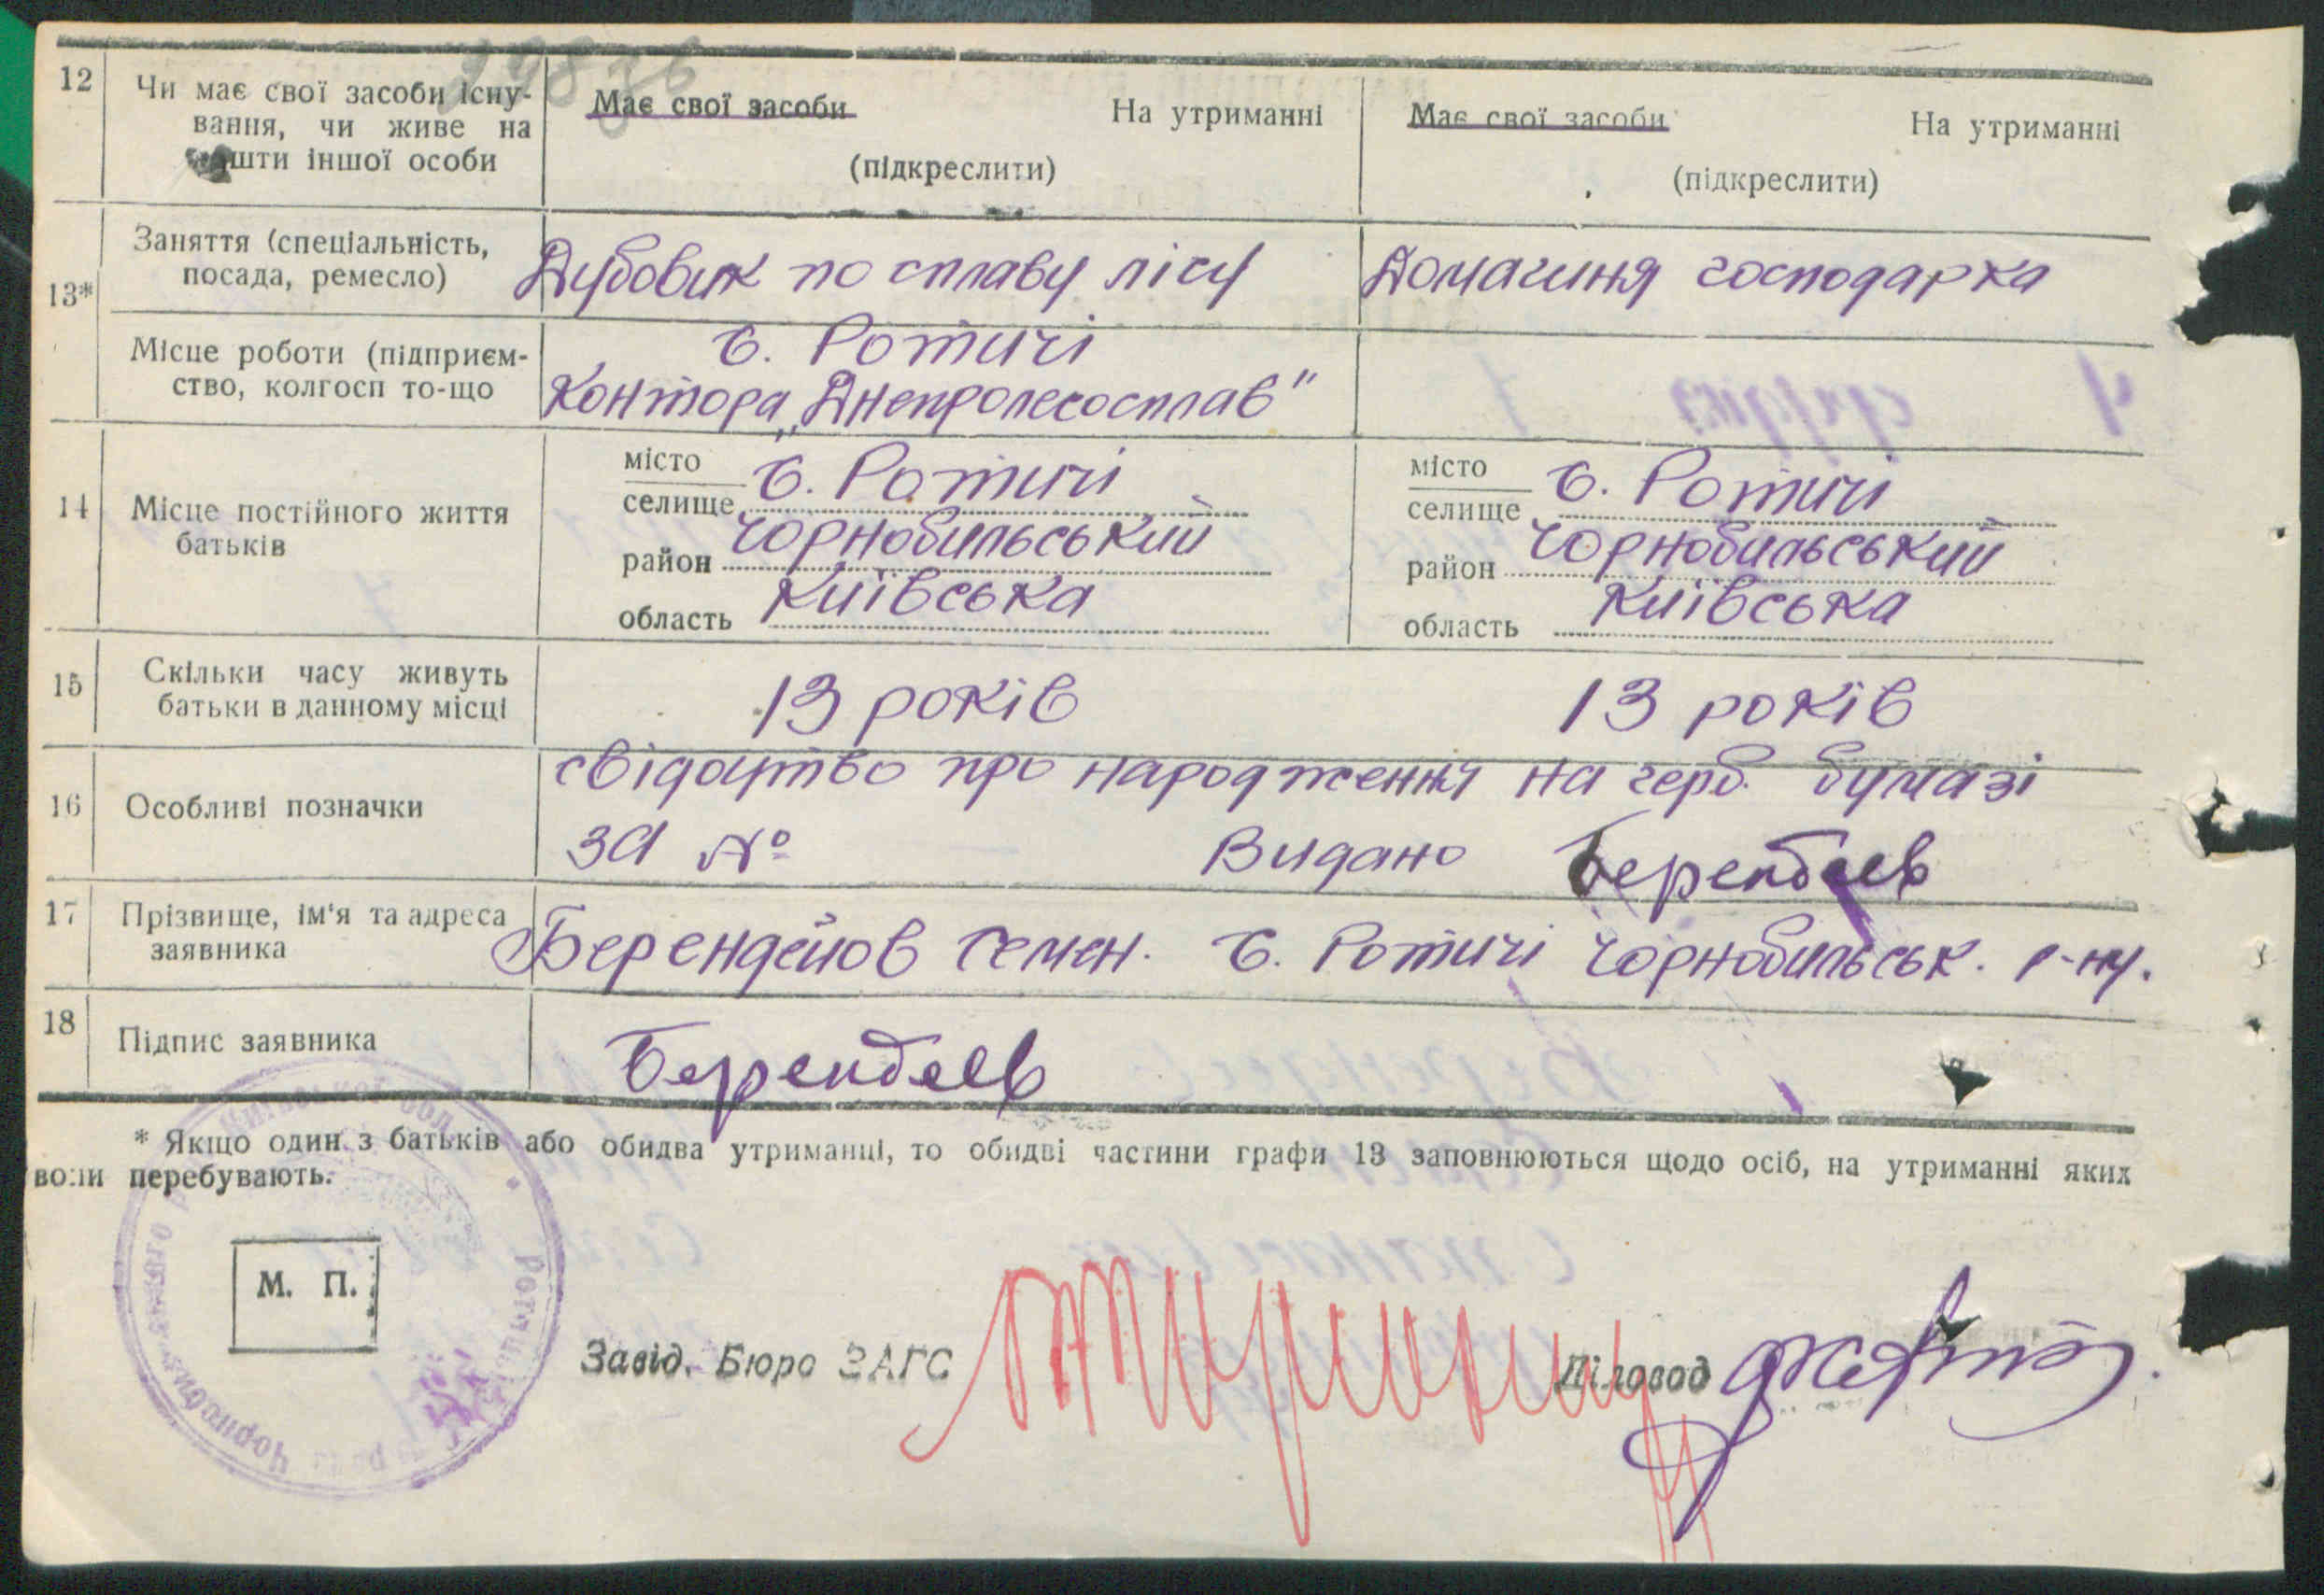 12 Чи має свої засоби існу- Має свої засоби На утриманні Має свої засоби На утриманні
вання, чи живе на
кошти іншої особи (підкреслити) (підкреслити)
13* Заняття (спеціальність, Дубовик по сплаву лісу Домашня господарка
посада, ремесло)
Місце роботи (підприєм- с. Ротичі
ство, колгосп то-що Контора „Днепролесосплав"
14 Місце постійного життя батьків
місто с. Ротичі місто с. Ротичі
селище селище
район Чорнобильський район Чорнобильський
область Київська область Київська
15 Скільки часу живуть 13 років 13 років
батьки в данному місці
16 Особливі позначки свідоцтво про народження на герб. бумазі
за № Видано Берендеев
17 Прізвище, ім'я та адреса Берендейов Семен. с. Ротичі Чорнобильськ. р-ну.
заявника
18 Підпис заявника Берендеев
* Якщо один з батьків або обидва утриманці, то обидві частини графи 13 заповнюються щодо осіб, на утриманні яких
вони перебувають.
М. П.
Завід. Бюро ЗАГС Діловод